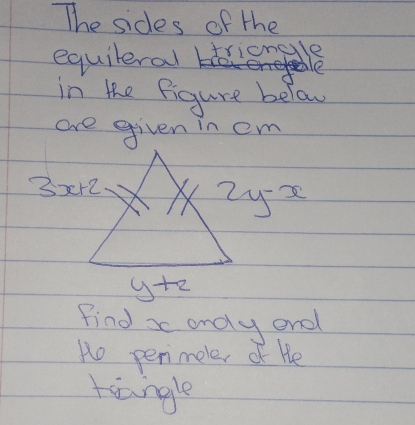 The sides of the
equiteral triangle
in the figure below
are given in cm
3x+2
2y-x
y+z
find x and y and
the perimeter of the
triangle